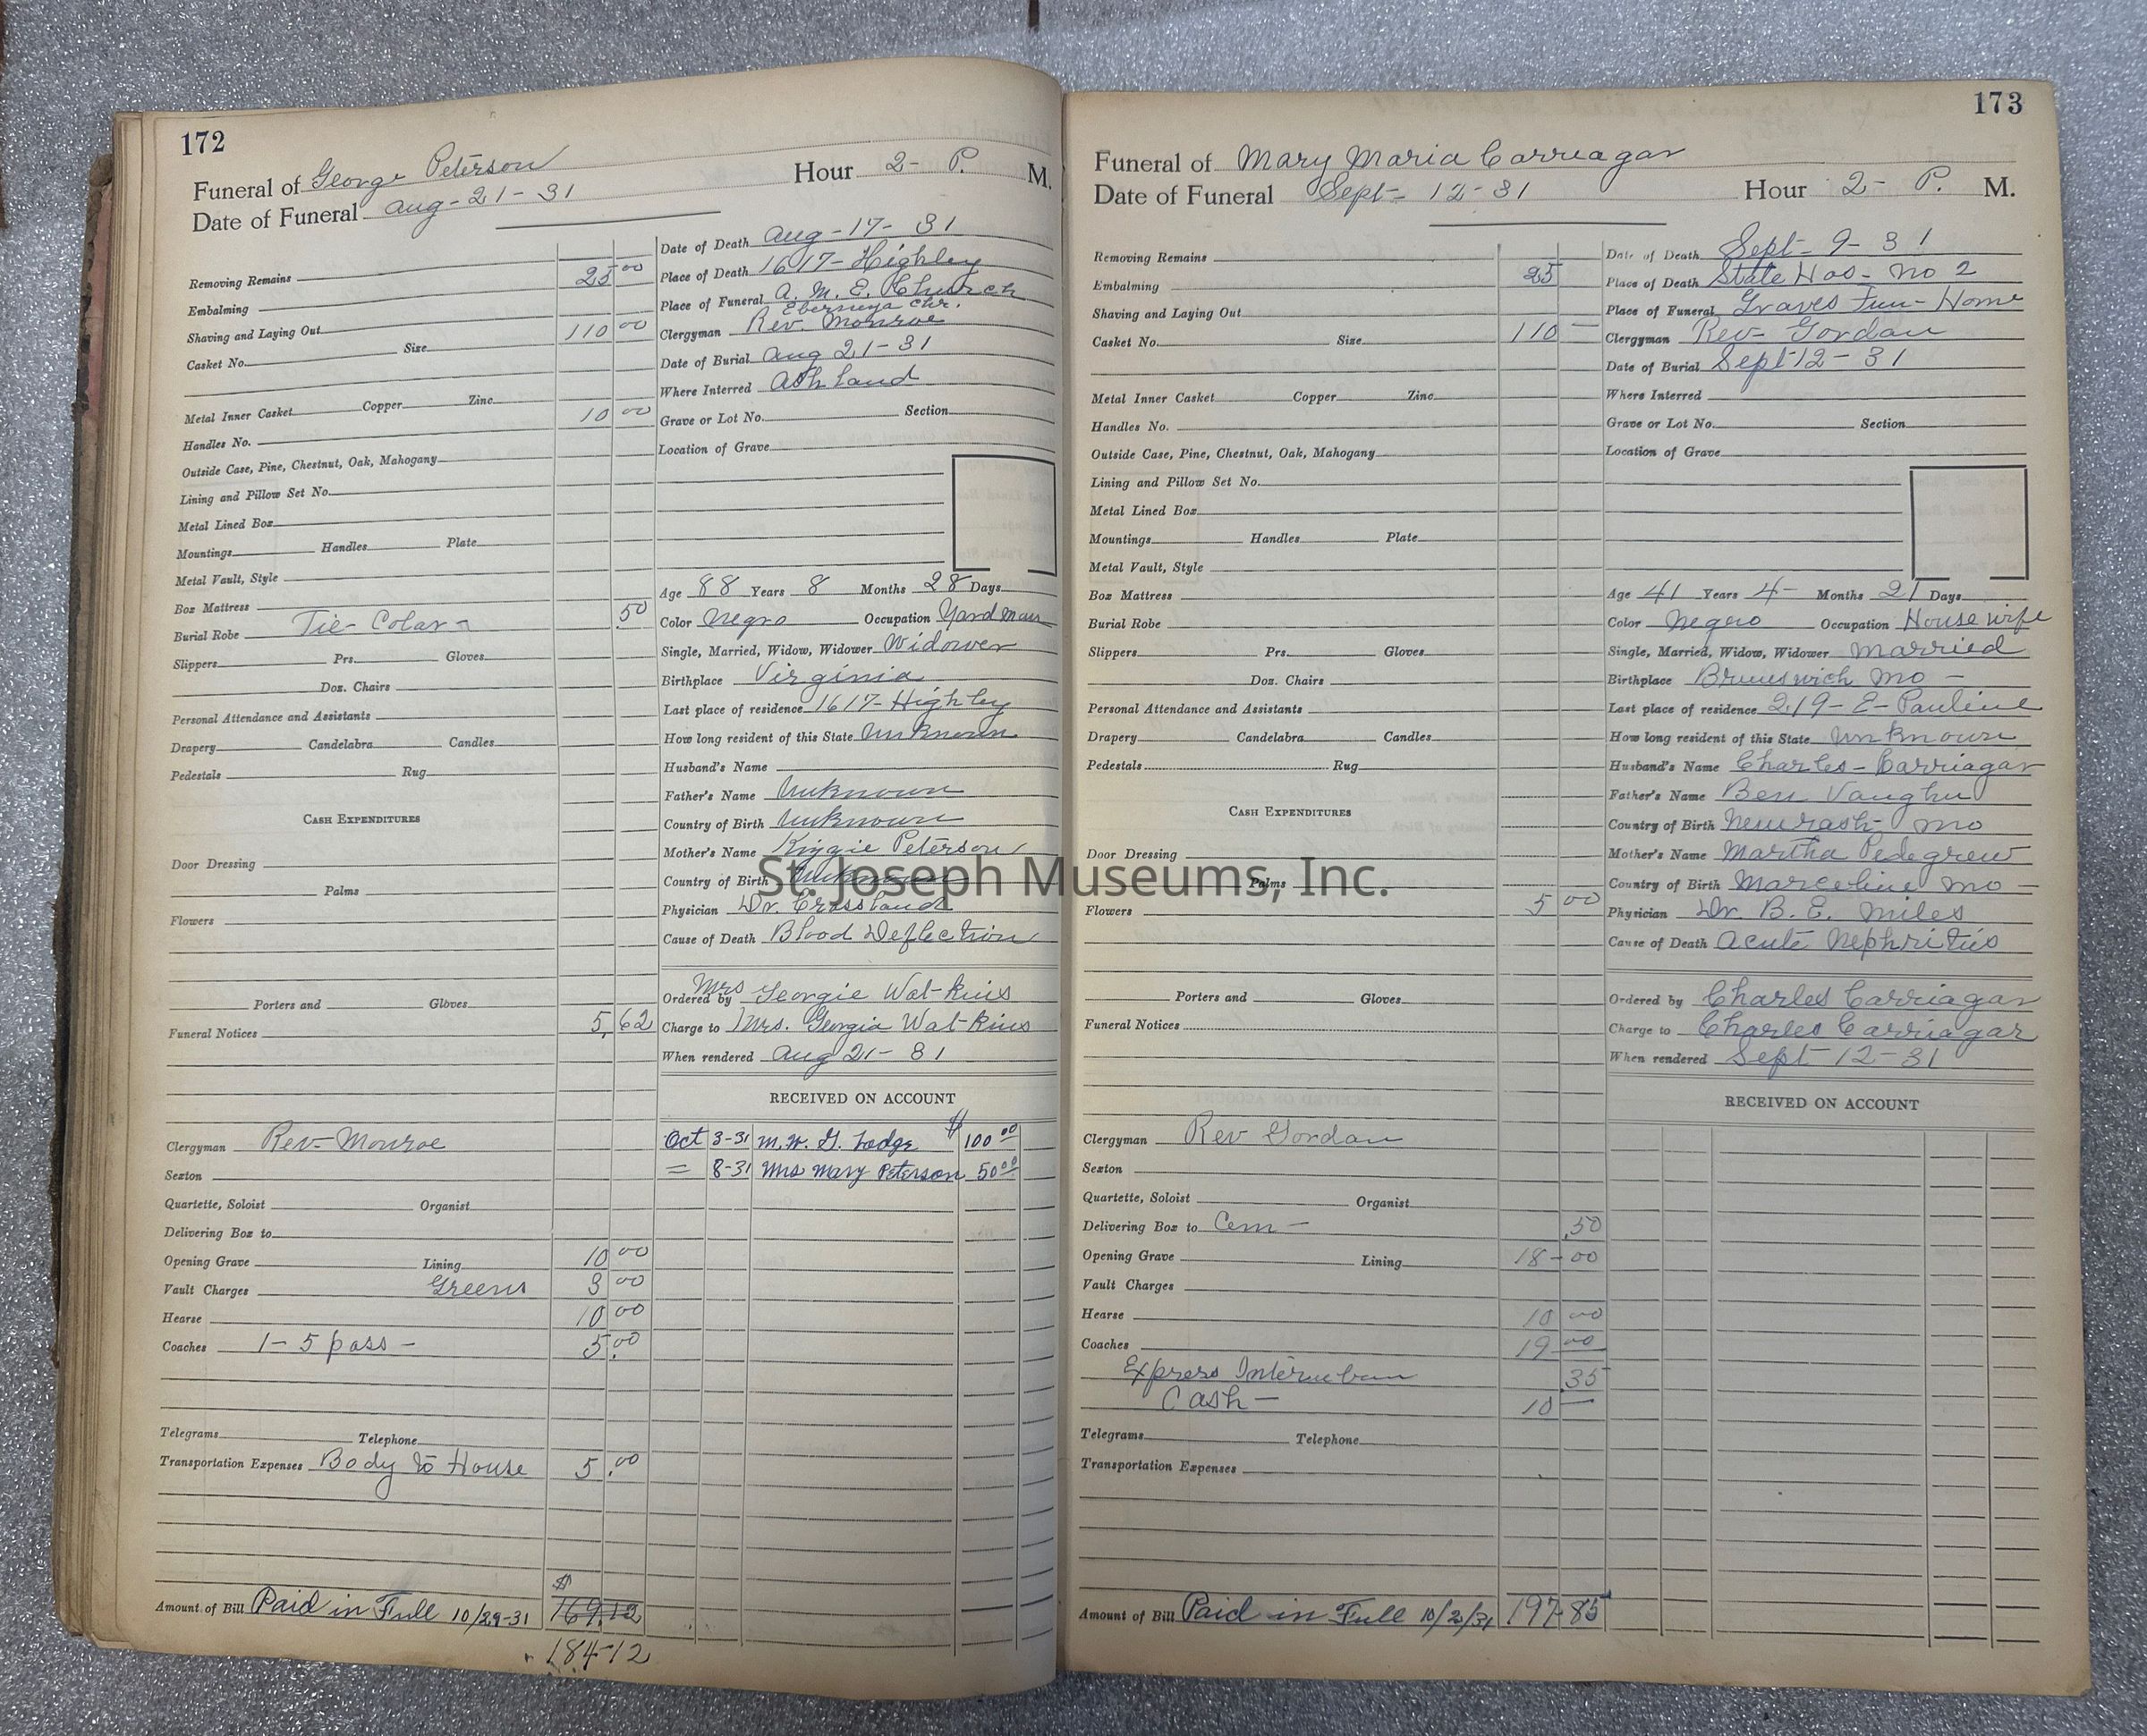 172
Funeral of George Peterson Hour 2- P. M.
Date of Funeral Aug-21-31
Removing Remains
Embalming 25 00
Shaving and Laying Out
Casket No. Size 110 00
Metal Inner Casket Copper Zinc
Handles No. 10 00
Outside Case, Pine, Chestnut, Oak, Mahogany
Lining and Pillow Set No.
Metal Lined Box
Mountings Handles Plate
Metal Vault, Style
Box Mattress
Burial Robe Tie- Colar- 50
Slippers Prs. Gloves
Doz. Chairs
Personal Attendance and Assistants
Drapery Candelabra Candles
Pedestals Rug
CASH EXPENDITURES
Door Dressing
Palms
Flowers
Porters and Gloves
Funeral Notices 5,62
Clergyman Rev- Monroe
Sexton
Quartette, Soloist Organist
Delivering Box to
Opening Grave Lining 10 00
Vault Charges Greens 3 00
Hearse 10 00
Coaches 1- 5 pass- 5.00
Telegrams Telephone
Transportation Expenses Body to House 5.00
Amount of Bill Paid in Full 10/29-31 $169.12
184-12
Date of Death Aug-17-31
Place of Death 1617- Highley
Place of Funeral A. M. E. Church
chr.
Clergyman Rev. Monroe
Date of Burial Aug 21-31
Where Interred Ashland
Grave or Lot No. Section
Location of Grave
Age 88 Years 8 Months 28 Days
Color Negro Occupation Yard man
Single, Married, Widow, Widower Widower
Birthplace Virginia
Last place of residence 1617- Highley
How long resident of this State Unknown
Husband's Name
Father's Name Unknown
Country of Birth Unknown
Mother's Name Peterson
Country of Birth Unknown
Physician Dr. Crossland
Cause of Death Blood Deflection
Ordered by Mrs Georgie Wat-kins
Charge to Mrs. Georgia Wat-kins
When rendered Aug 21-31
RECEIVED ON ACCOUNT
Oct 3-31 M.W. G. Lodge $100 00
= 8-31 Mrs Mary Peterson 50 00
173
Funeral of Mary Maria Carriagar
Date of Funeral Sept- 12-31 Hour 2- P. M.
Removing Remains
Embalming 25
Shaving and Laying Out
Casket No. Size 110 —
Metal Inner Casket Copper Zinc
Handles No.
Outside Case, Pine, Chestnut, Oak, Mahogany
Lining and Pillow Set No.
Metal Lined Box
Mountings Handles Plate
Metal Vault, Style
Box Mattress
Burial Robe
Slippers Prs. Gloves
Doz. Chairs
Personal Attendance and Assistants
Drapery Candelabra Candles
Pedestals Rug
CASH EXPENDITURES
Door Dressing
Palms
Flowers 5 00
Porters and Gloves
Funeral Notices
Clergyman Rev Gordan
Sexton
Quartette, Soloist Organist
Delivering Box to Cem- .50
Opening Grave Lining 18-00
Vault Charges
Hearse 10 00
Coaches 19 00
Express Interurban .35
Cash- 10 —
Telegrams Telephone
Transportation Expenses
Amount of Bill Paid in Full 10/2/31 197-85
Date of Death Sept- 9-31
Place of Death State Hos- No 2
Place of Funeral Graves Fun- Home
Clergyman Rev- Gordan
Date of Burial Sept 12-31
Where Interred
Grave or Lot No. Section
Location of Grave
Age 41 Years 4- Months 21 Days
Color Negro Occupation House wife
Single, Married, Widow, Widower Married
Birthplace Brunswich Mo-
Last place of residence 219- E- Pauline
How long resident of this State Unknown
Husband's Name Charles- Carriagar
Father's Name Ben Vaughn
Country of Birth Mo
Mother's Name Martha Pedegrew
Country of Birth Marceline Mo-
Physician Dr. B. E. Miles
Cause of Death Acute Nephritis
Ordered by Charles Carriagar
Charge to Charles Carriagar
When rendered Sept-12-31
RECEIVED ON ACCOUNT
St. Joseph Museums, Inc.